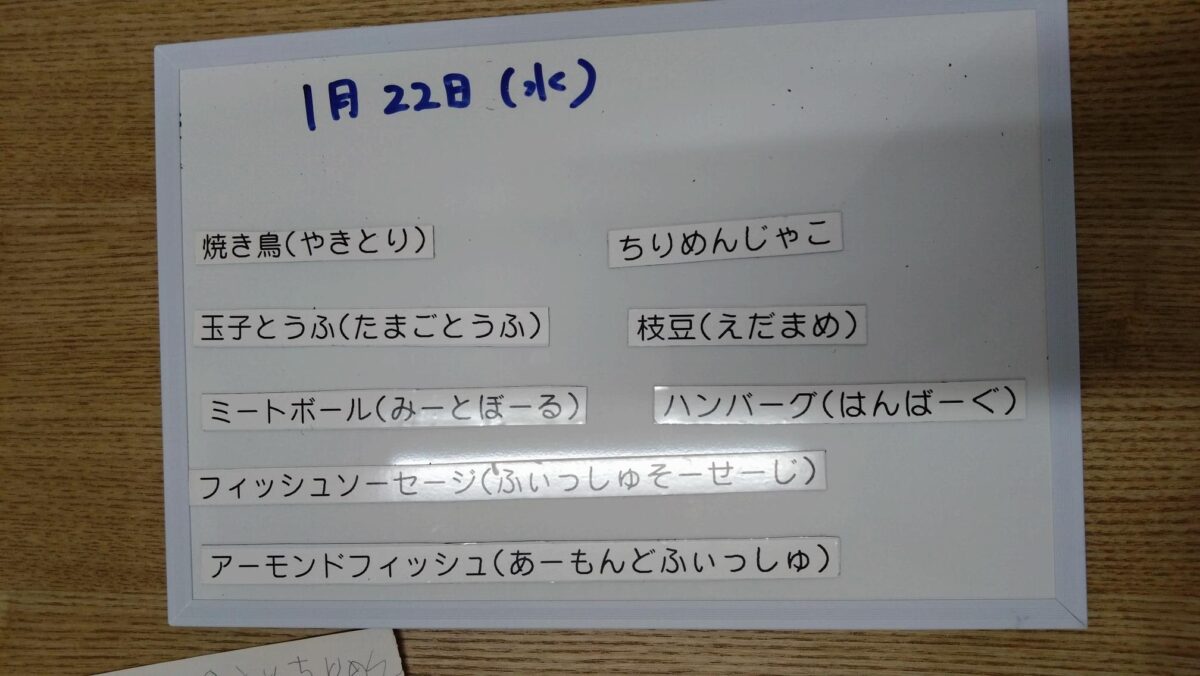 1月22日(水)
焼き鳥(やきとり)
ちりめんじゃこ
玉子とうふ(たまごとうふ)
枝豆(えだまめ)
ミートボール(みーとぼーる)
ハンバーグ(はんばーぐ)
フィッシュソーセージ(ふぃっしゅそーせーじ)
アーモンドフィッシュ(あーもんどふぃっしゅ)